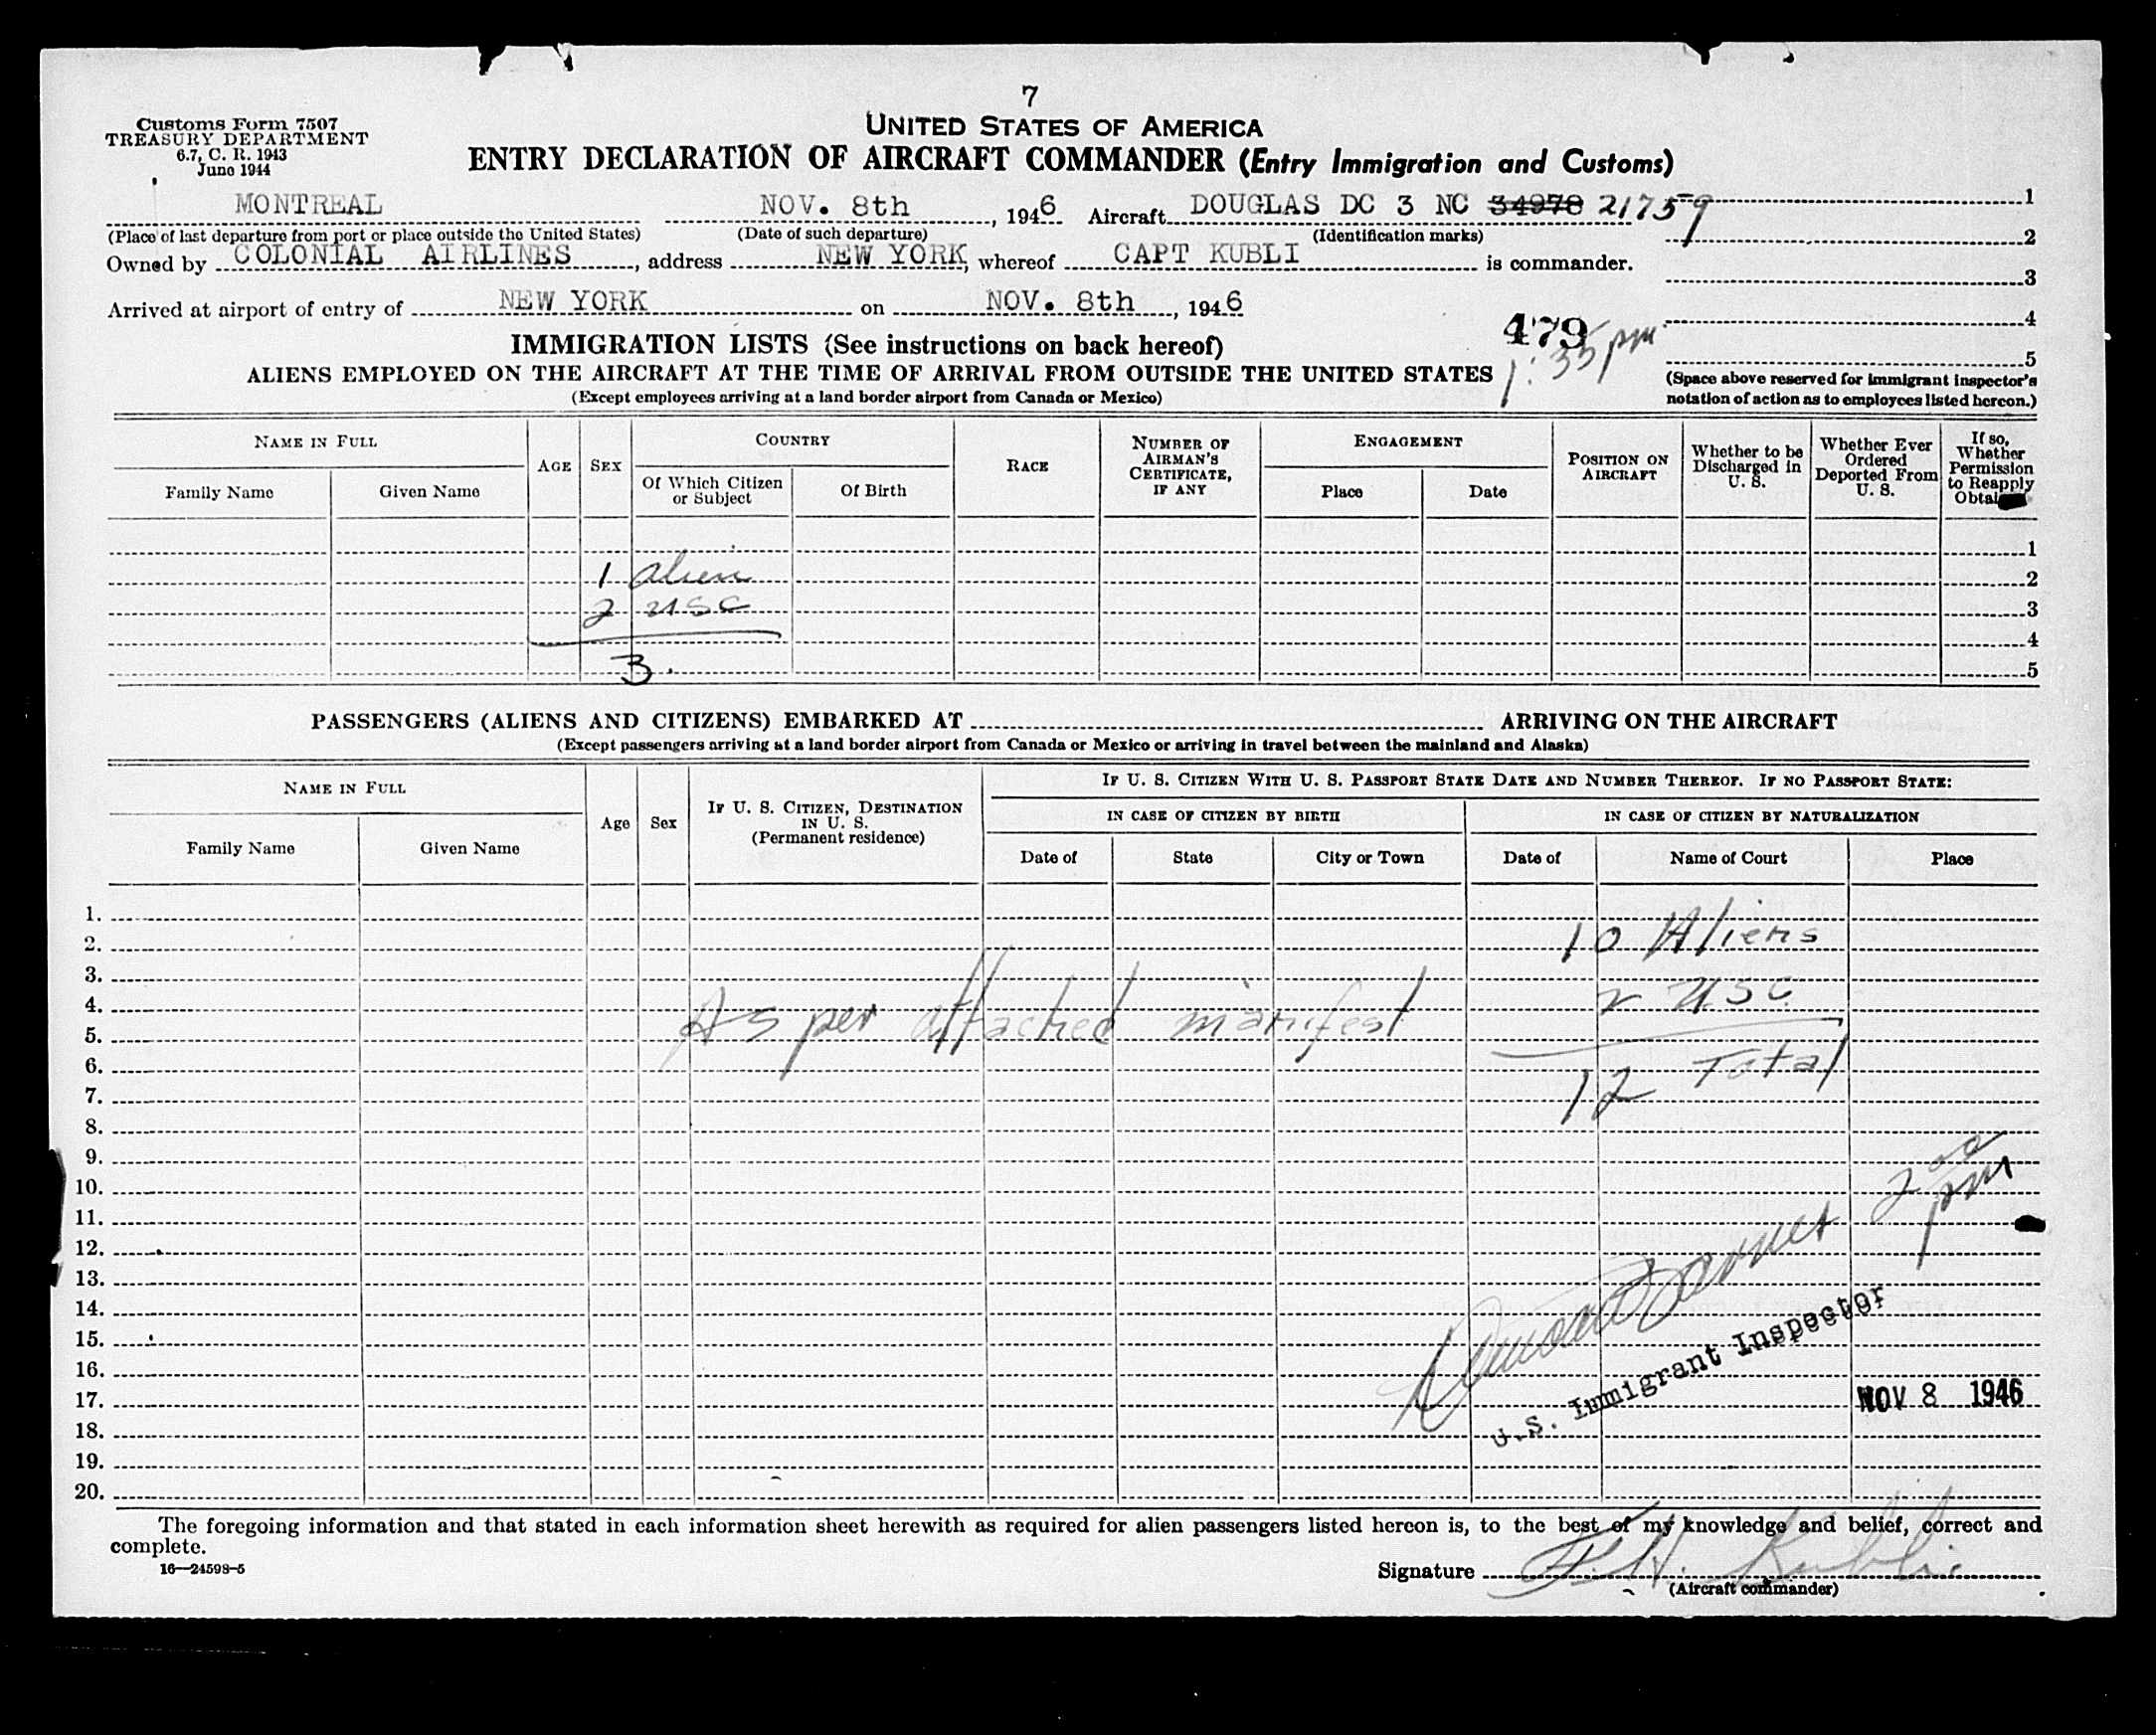 7
Customs Form 7507
TREASURY DEPARTMENT
6.7, C. R. 1943
June 1944
UNITED STATES OF AMERICA
ENTRY DECLARATION OF AIRCRAFT COMMANDER (Entry Immigration and Customs)
MONTREAL NOV. 8th, 1946 Aircraft DOUGLAS DC 3 NC 34978 21759
(Place of last departure from port or place outside the United States) (Date of such departure) (Identification marks)
Owned by COLONIAL AIRLINES, address NEW YORK, whereof CAPT KUBLI is commander.
Arrived at airport of entry of NEW YORK on NOV. 8th, 1946
1
2
3
4
5
(Space above reserved for immigrant inspector's
notation of action as to employees listed hereon.)
479
1:35 pm
IMMIGRATION LISTS (See instructions on back hereof)
ALIENS EMPLOYED ON THE AIRCRAFT AT THE TIME OF ARRIVAL FROM OUTSIDE THE UNITED STATES
(Except employees arriving at a land border airport from Canada or Mexico)
NAME IN FULL
Family Name Given Name
AGE SEX
COUNTRY
Of Which Citizen
or Subject
Of Birth
RACE
NUMBER OF
AIRMAN'S
CERTIFICATE,
IF ANY
ENGAGEMENT
Place Date
POSITION ON
AIRCRAFT
Whether to be
Discharged in
U. S.
Whether Ever
Ordered
Deported From
U. S.
If so,
Whether
Permission
to Reapply
1
1 alien 2
2 USC 3
4
3. 5
PASSENGERS (ALIENS AND CITIZENS) EMBARKED AT ARRIVING ON THE AIRCRAFT
(Except passengers arriving at a land border airport from Canada or Mexico or arriving in travel between the mainland and Alaska)
NAME IN FULL
Family Name Given Name
Age Sex
IF U. S. CITIZEN, DESTINATION
IN U. S.
(Permanent residence)
IF U. S. CITIZEN WITH U. S. PASSPORT STATE DATE AND NUMBER THEREOF. IF NO PASSPORT STATE:
IN CASE OF CITIZEN BY BIRTH IN CASE OF CITIZEN BY NATURALIZATION
Date of State City or Town Date of Name of Court Place
1.
2. 10 Aliens
3.
4. 2 USC
5. As per attached manifest
6. 12 Total
7.
8.
9.
10. 2 00 pm
11.
12.
13.
14.
15.
16.
17.
18.
19.
20.
U.S. Immigrant Inspector
NOV 8 1946
The foregoing information and that stated in each information sheet herewith as required for alien passengers listed hereon is, to the best of my knowledge and belief, correct and
complete.
16—24598-5
Signature F.H. Kubli
(Aircraft commander)